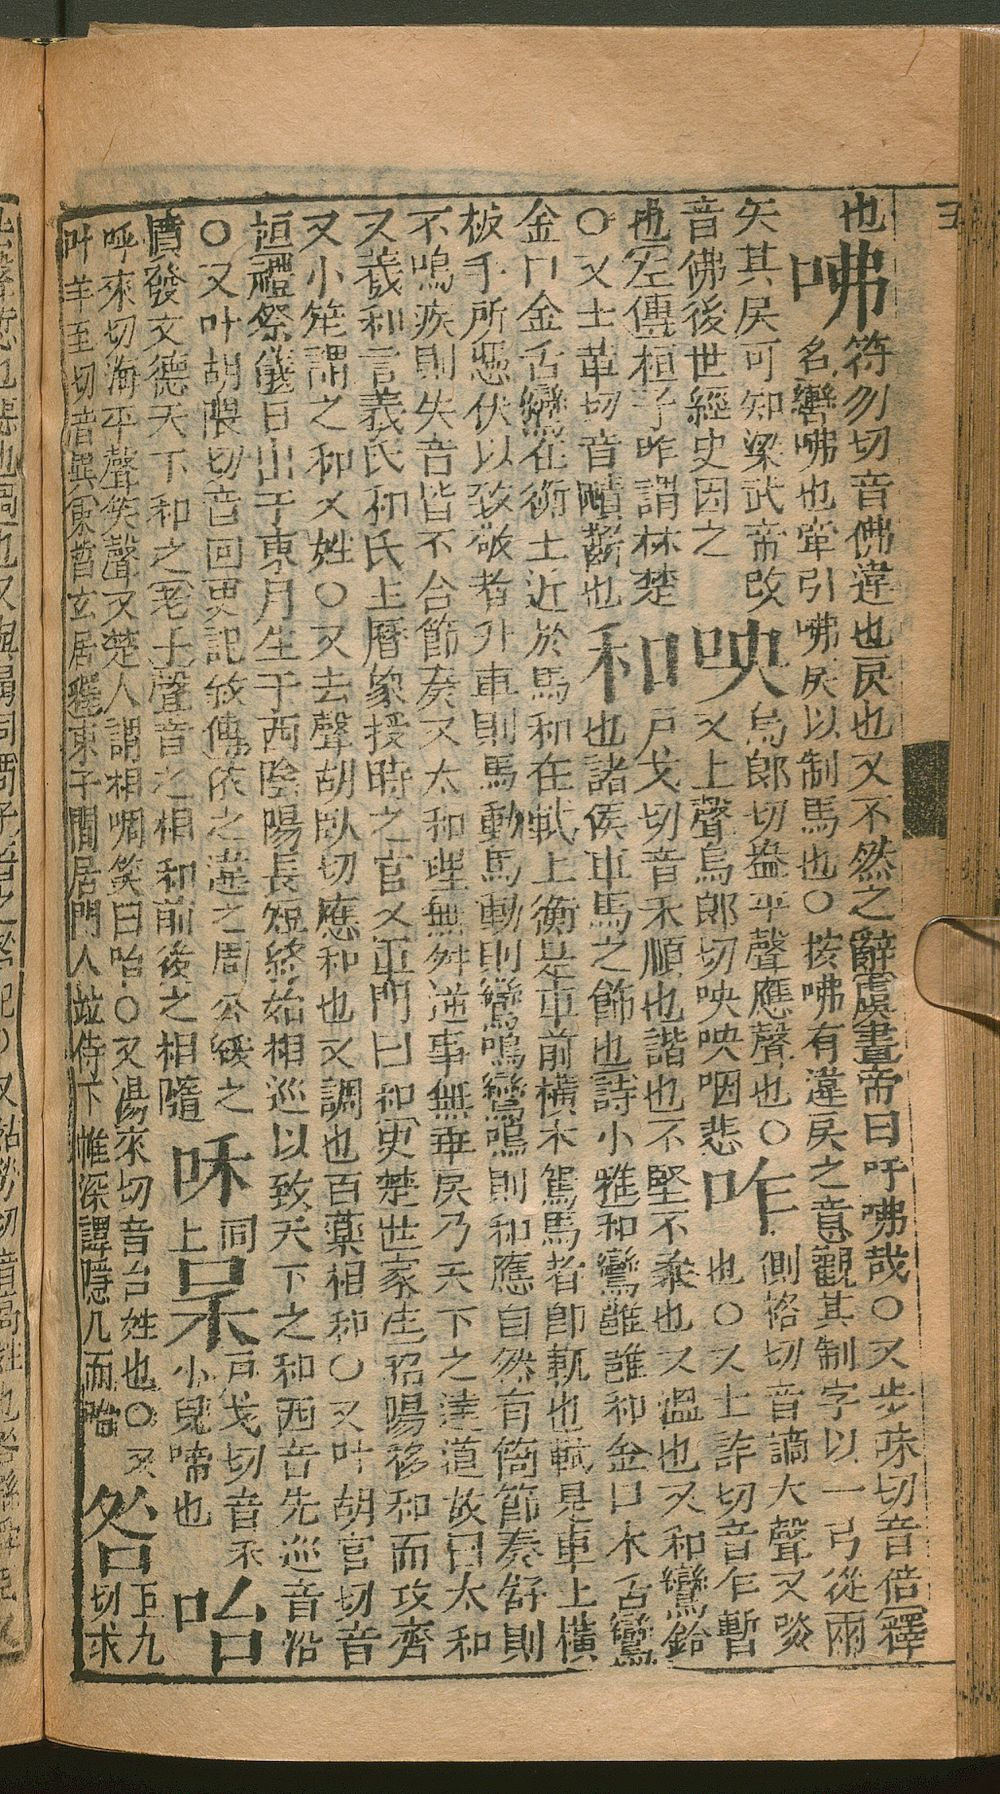 也咈符勿切音佛違也戾也又不然之辭虞書帝曰吁咈哉○又步昧切音倍釋
名轡咈也牽引咈戾以制馬也○按咈有違戾之意觀其制字以一弓從兩
矢其戾可知梁武帝改
音佛後世經史因之
咉烏郎切盎平聲應聲也○
又上聲烏郎切咉咉咽悲
咋側格切音謫大聲又啖
也○又士詐切音乍暫
也左傳桓子咋謂林楚
○又士革切音賾齰也
和戶戈切音禾順也諧也不堅不柔也又溫也又和鸞鈴
也諸侯車馬之飾也詩小雅和鸞雝雝和金口木舌鸞
金口金舌鸞在衡土近於馬和在軾上衡是車前橫木駕馬者卽軏也軾是車上橫
板手所憑伏以致敬者升車則馬動馬動則鸞鳴鸞鳴則和應自然有箇節奏舒則
不鳴疾則失音皆不合節奏又太和理無舛逆事無乖戾乃天下之達道故曰太和
又羲和言羲氏和氏上曆象授時之官又軍門曰和史楚世家 昭陽移和而攻齊
又小笙謂之和又姓○又去聲胡臥切應和也又調也百藥相和○又叶胡官切音
桓禮祭儀日出于東月生于西陰陽長短終始相巡以致天下之和西音先巡音沿
○又叶胡隈切音回史記敘傳依之違之周公綏之
憤發文德天下和之老子聲音之相和前後之相隨
咊同
上
呆戸戈切音禾
小兒啼也
咍
呼來切海平聲笑聲又楚人謂相啁笑曰咍○又湯來切音台姓也○又
叶羊至切音異 玄居 東子閒居門人竝侍下帷深譚隱几而咍
咎巨九
切求